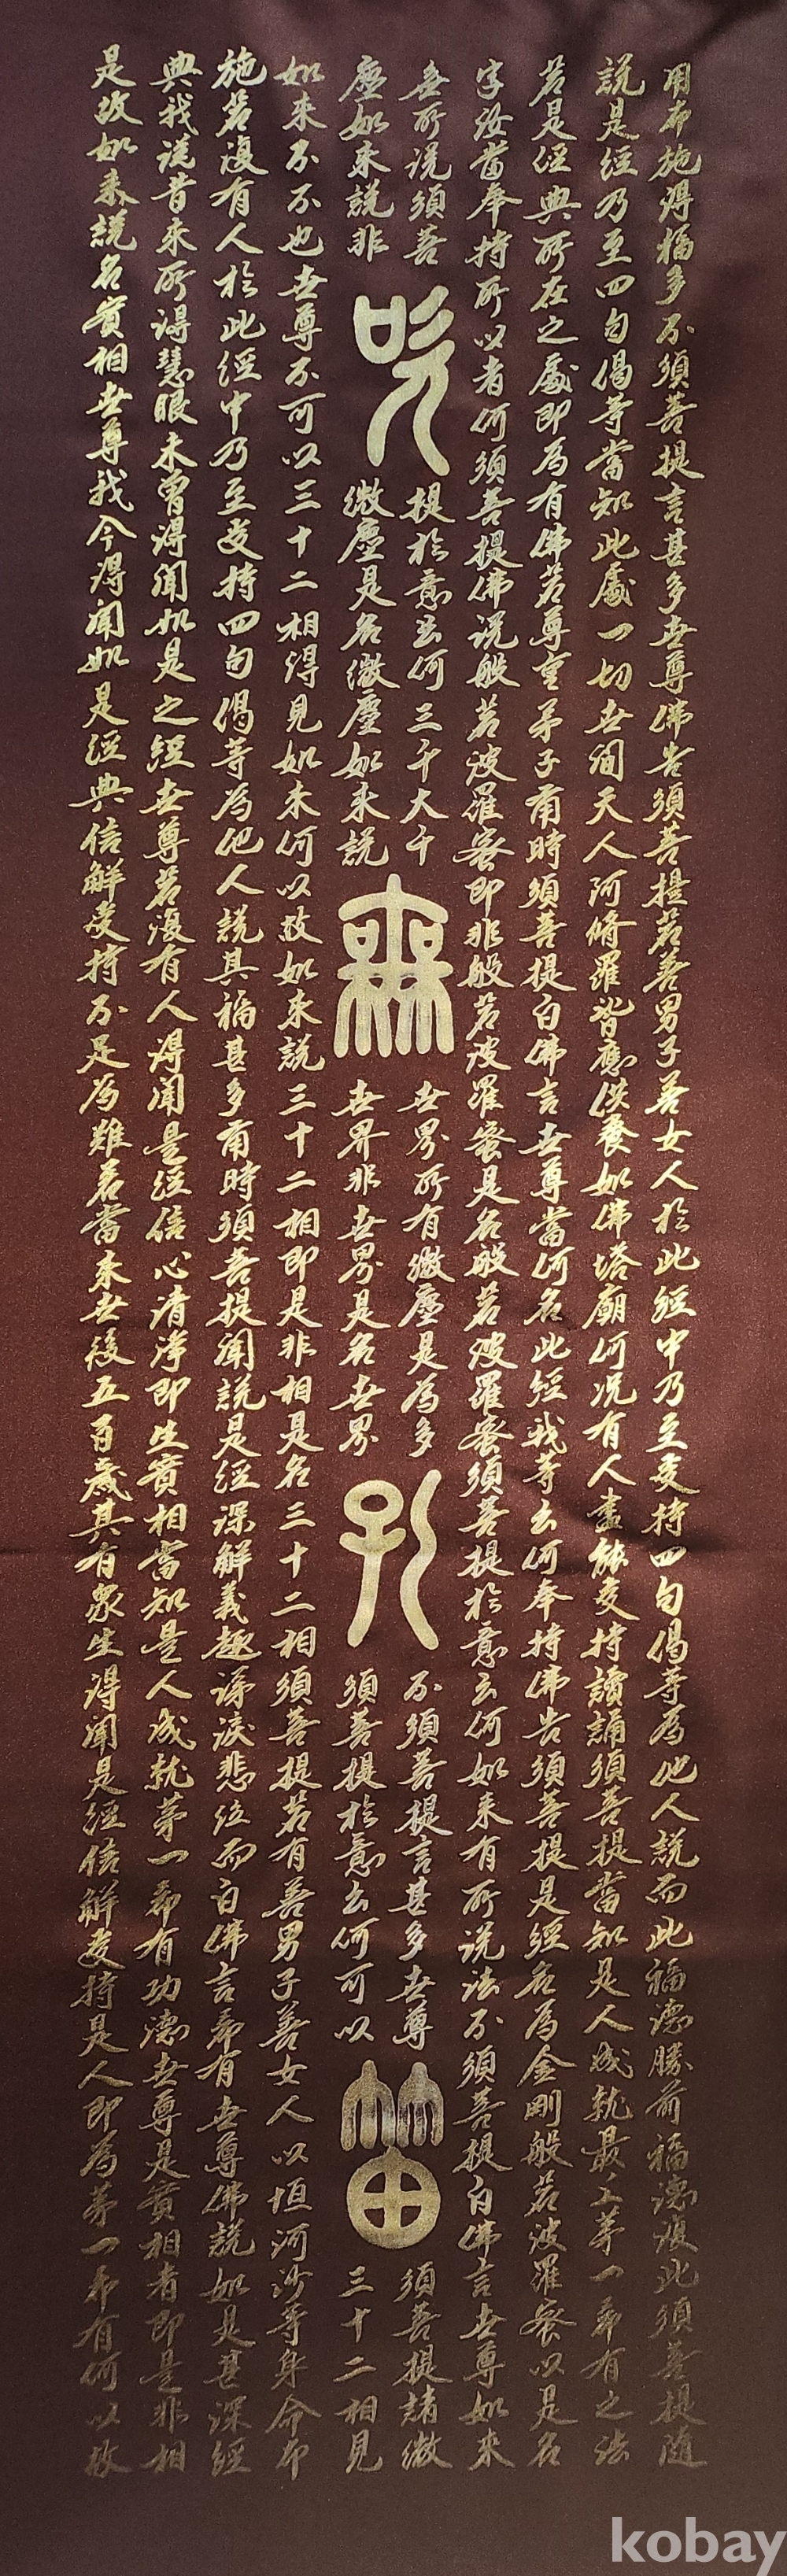 用布施得福多不須菩提言甚多世尊佛告須菩提若善男子善女人於此經中乃至受持四句偈等為他人說而此福德勝前福德復此須菩提隨
說是經乃至四句偈等當知此處一切世間天人阿脩羅皆應供養如佛塔廟何況有人盡能受持讀誦須菩提當知是人成就最上第一希有之法
若是經典所在之處即為有佛若尊重弟子爾時須菩提白佛言世尊當何名此經我等云何奉持佛告須菩提是經名為金剛般若波羅蜜以是名
字汝當奉持所以者何須菩提佛說般若波羅蜜即非般若波羅蜜是名般若波羅蜜須菩提於意云何如來有所說法不須菩提白佛言世尊如來
無所說須菩提於意云何三千大千世界所有微塵是為多不須菩提言甚多世尊須菩提諸微
吹無孔笛
塵如來說非微塵是名微塵如來說世界非世界是名世界須菩提於意云何可以三十二相見
如來不不也世尊不可以三十二相得見如來何以故如來說三十二相即是非相是名三十二相須菩提若有善男子善女人以恒河沙等身命布
施若復有人於此經中乃至受持四句偈等為他人說其福甚多爾時須菩提聞說是經深解義趣涕淚悲泣而白佛言希有世尊佛說如是甚深經
典我從昔來所得慧眼未曾得聞如是之經世尊若復有人得聞是經信心清淨即生實相當知是人成就第一希有功德世尊是實相者即是非相
是故如來說名實相世尊我今得聞如是經典信解受持不足為難若當來世後五百歲其有眾生得聞是經信解受持是人即為第一希有何以故
kobay